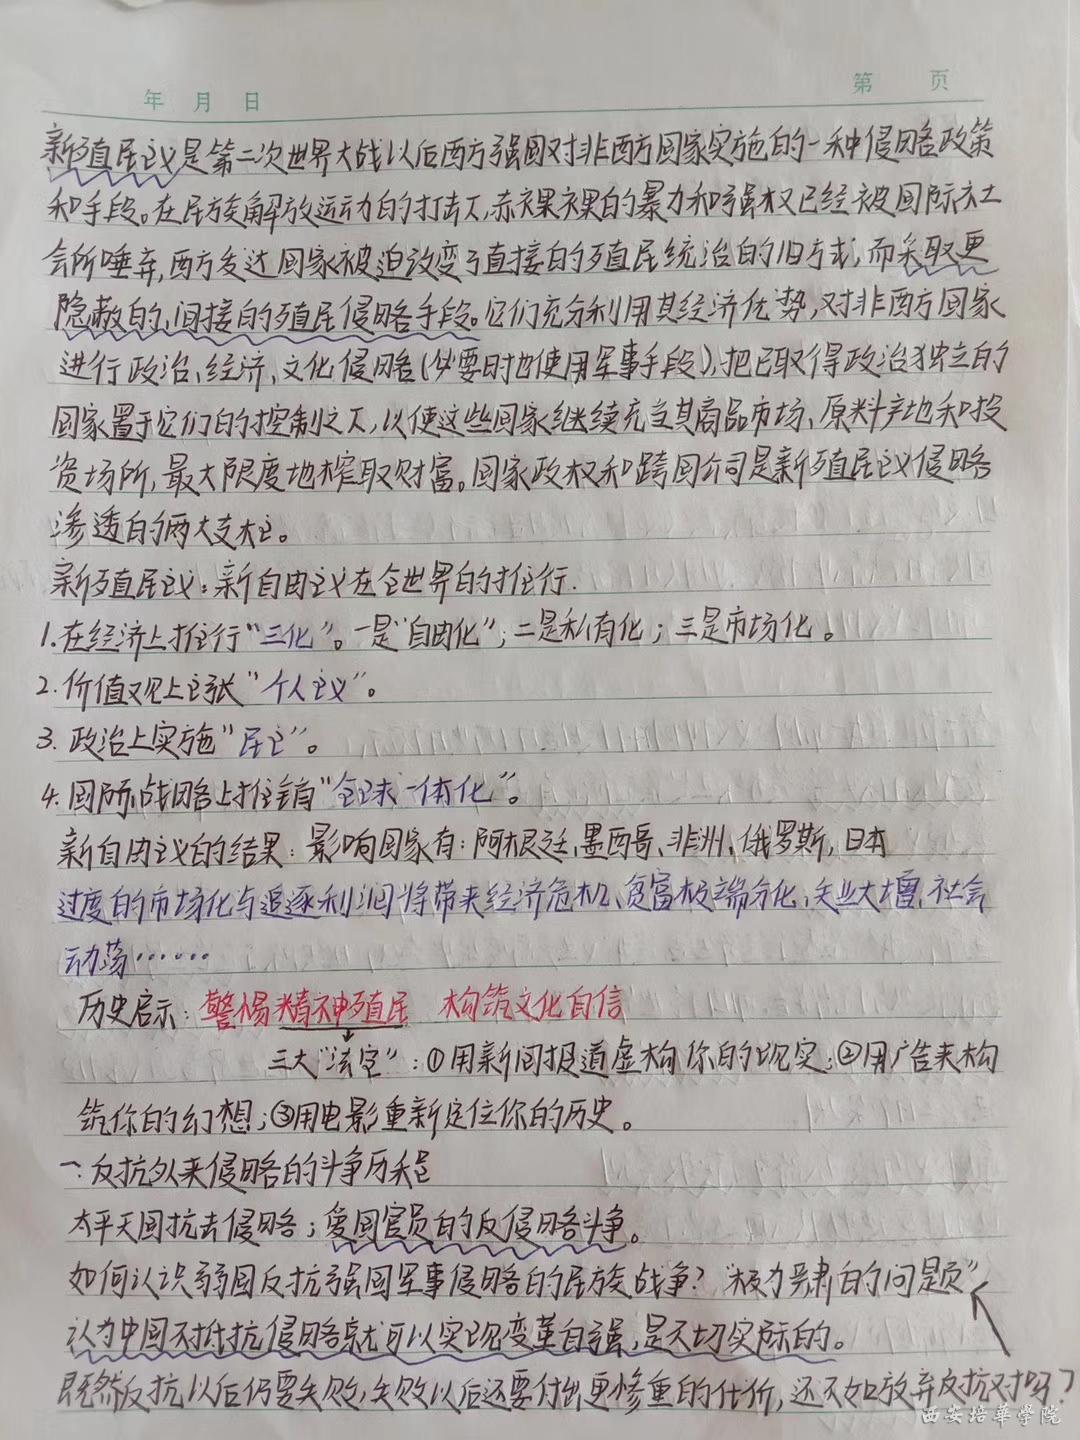 年 月 日
第 页
新殖民主义是第二次世界大战以后西方强国对非西方国家实施的一种侵略政策
和手段。在民族解放运动的打击下,赤裸裸的暴力和强权已经被国际社
会所唾弃,西方发达国家被迫改变了直接的殖民统治的旧方式,而采取更
隐蔽的,间接的殖民侵略手段。它们充分利用其经济优势,对非西方国家
进行政治、经济、文化侵略(必要时也使用军事手段),把已取得政治独立的
国家置于它们的控制之下,以使这些国家继续充当其商品市场、原料产地和投
资场所,最大限度地榨取财富。国家政权和跨国公司是新殖民主义侵略
渗透的两大支柱。
新殖民主义:新自由主义在全世界的推行.
1.在经济上推行“三化”。一是“自由化”;二是私有化;三是市场化。
2.价值观上主张“个人主义”。
3.政治上实施“民主”。
4.国际战略上推销“全球一体化”。
新自由主义的结果:影响国家有:阿根廷、墨西哥、非洲、俄罗斯,日本
过度的市场化与追逐利润将带来经济危机、贫富极端分化,失业大增,社会
动荡……
历史启示:警惕精神殖民 构筑文化自信
三大“法宝”:①用新闻报道虚构你的现实;②用广告来构
筑你的幻想;③用电影重新定位你的历史。
一.反抗外来侵略的斗争历程
太平天国抗击侵略;爱国官员的反侵略斗争。
如何认识弱国反抗强国军事侵略的民族战争?“极为严肃的问题”
认为中国不抵抗侵略就可以实现变革自强,是不切实际的。
既然反抗以后仍要失败,失败以后还要付出更惨重的代价,还不如放弃反抗对吗?
西安培華學院